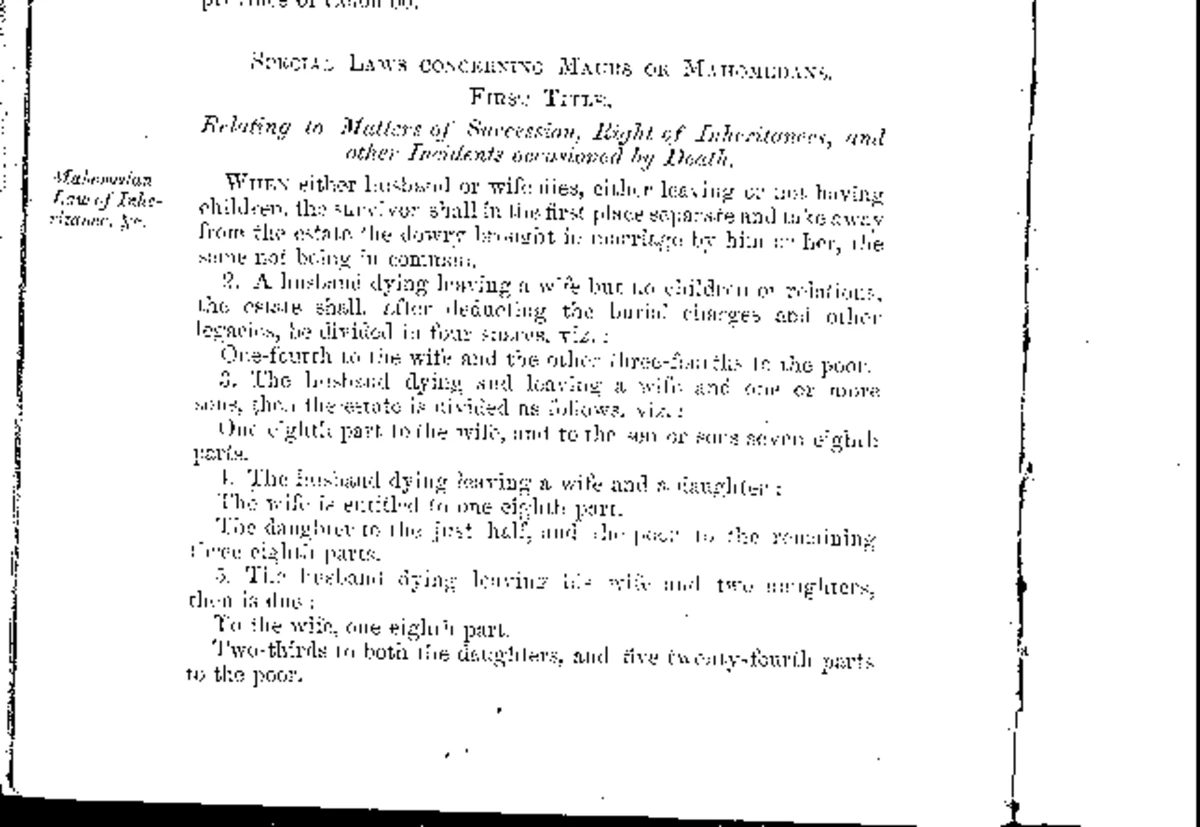 province of Colombo.
SPECIAL LAWS CONCERNING MAURS OR MAHOMEDANS.
FIRST TITLE.
Relating to Matters of Succession, Right of Inheritances, and
other Incidents occasioned by Death.
Mahomedan
Law of Inhe-
ritance, &c.
WHEN either husband or wife dies, either leaving or not having
children, the survivor shall in the first place separate and take away
from the estate the dowry brought in marriage by him or her, the
same not being in common.
2. A husband dying leaving a wife but no children or relations,
the estate shall, after deducting the burial charges and other
legacies, be divided in four shares, viz.:
One-fourth to the wife and the other three-fourths to the poor.
3. The husband dying and leaving a wife and one or more
sons, then the estate is divided as follows, viz.:
One eighth part to the wife, and to the son or sons seven eighth
parts.
4. The husband dying leaving a wife and a daughter:
The wife is entitled to one eighth part.
The daughter to the just half, and the poor to the remaining
three eighth parts.
5. The husband dying leaving his wife and two daughters,
then is due:
To the wife, one eighth part.
Two-thirds to both the daughters, and five twenty-fourth parts
to the poor.